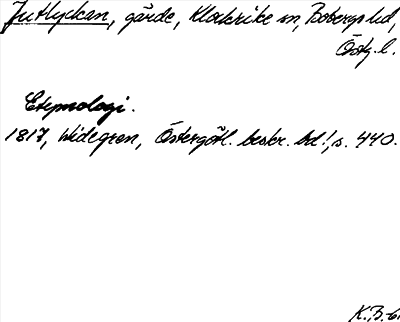 Jutlyckan, gärde, Klockrike sn, Bobergs hd,
Östg. l.
Etymologi.
1817, Widegren, Östergötl. beskr. bd 1, s. 440.
K.B.61